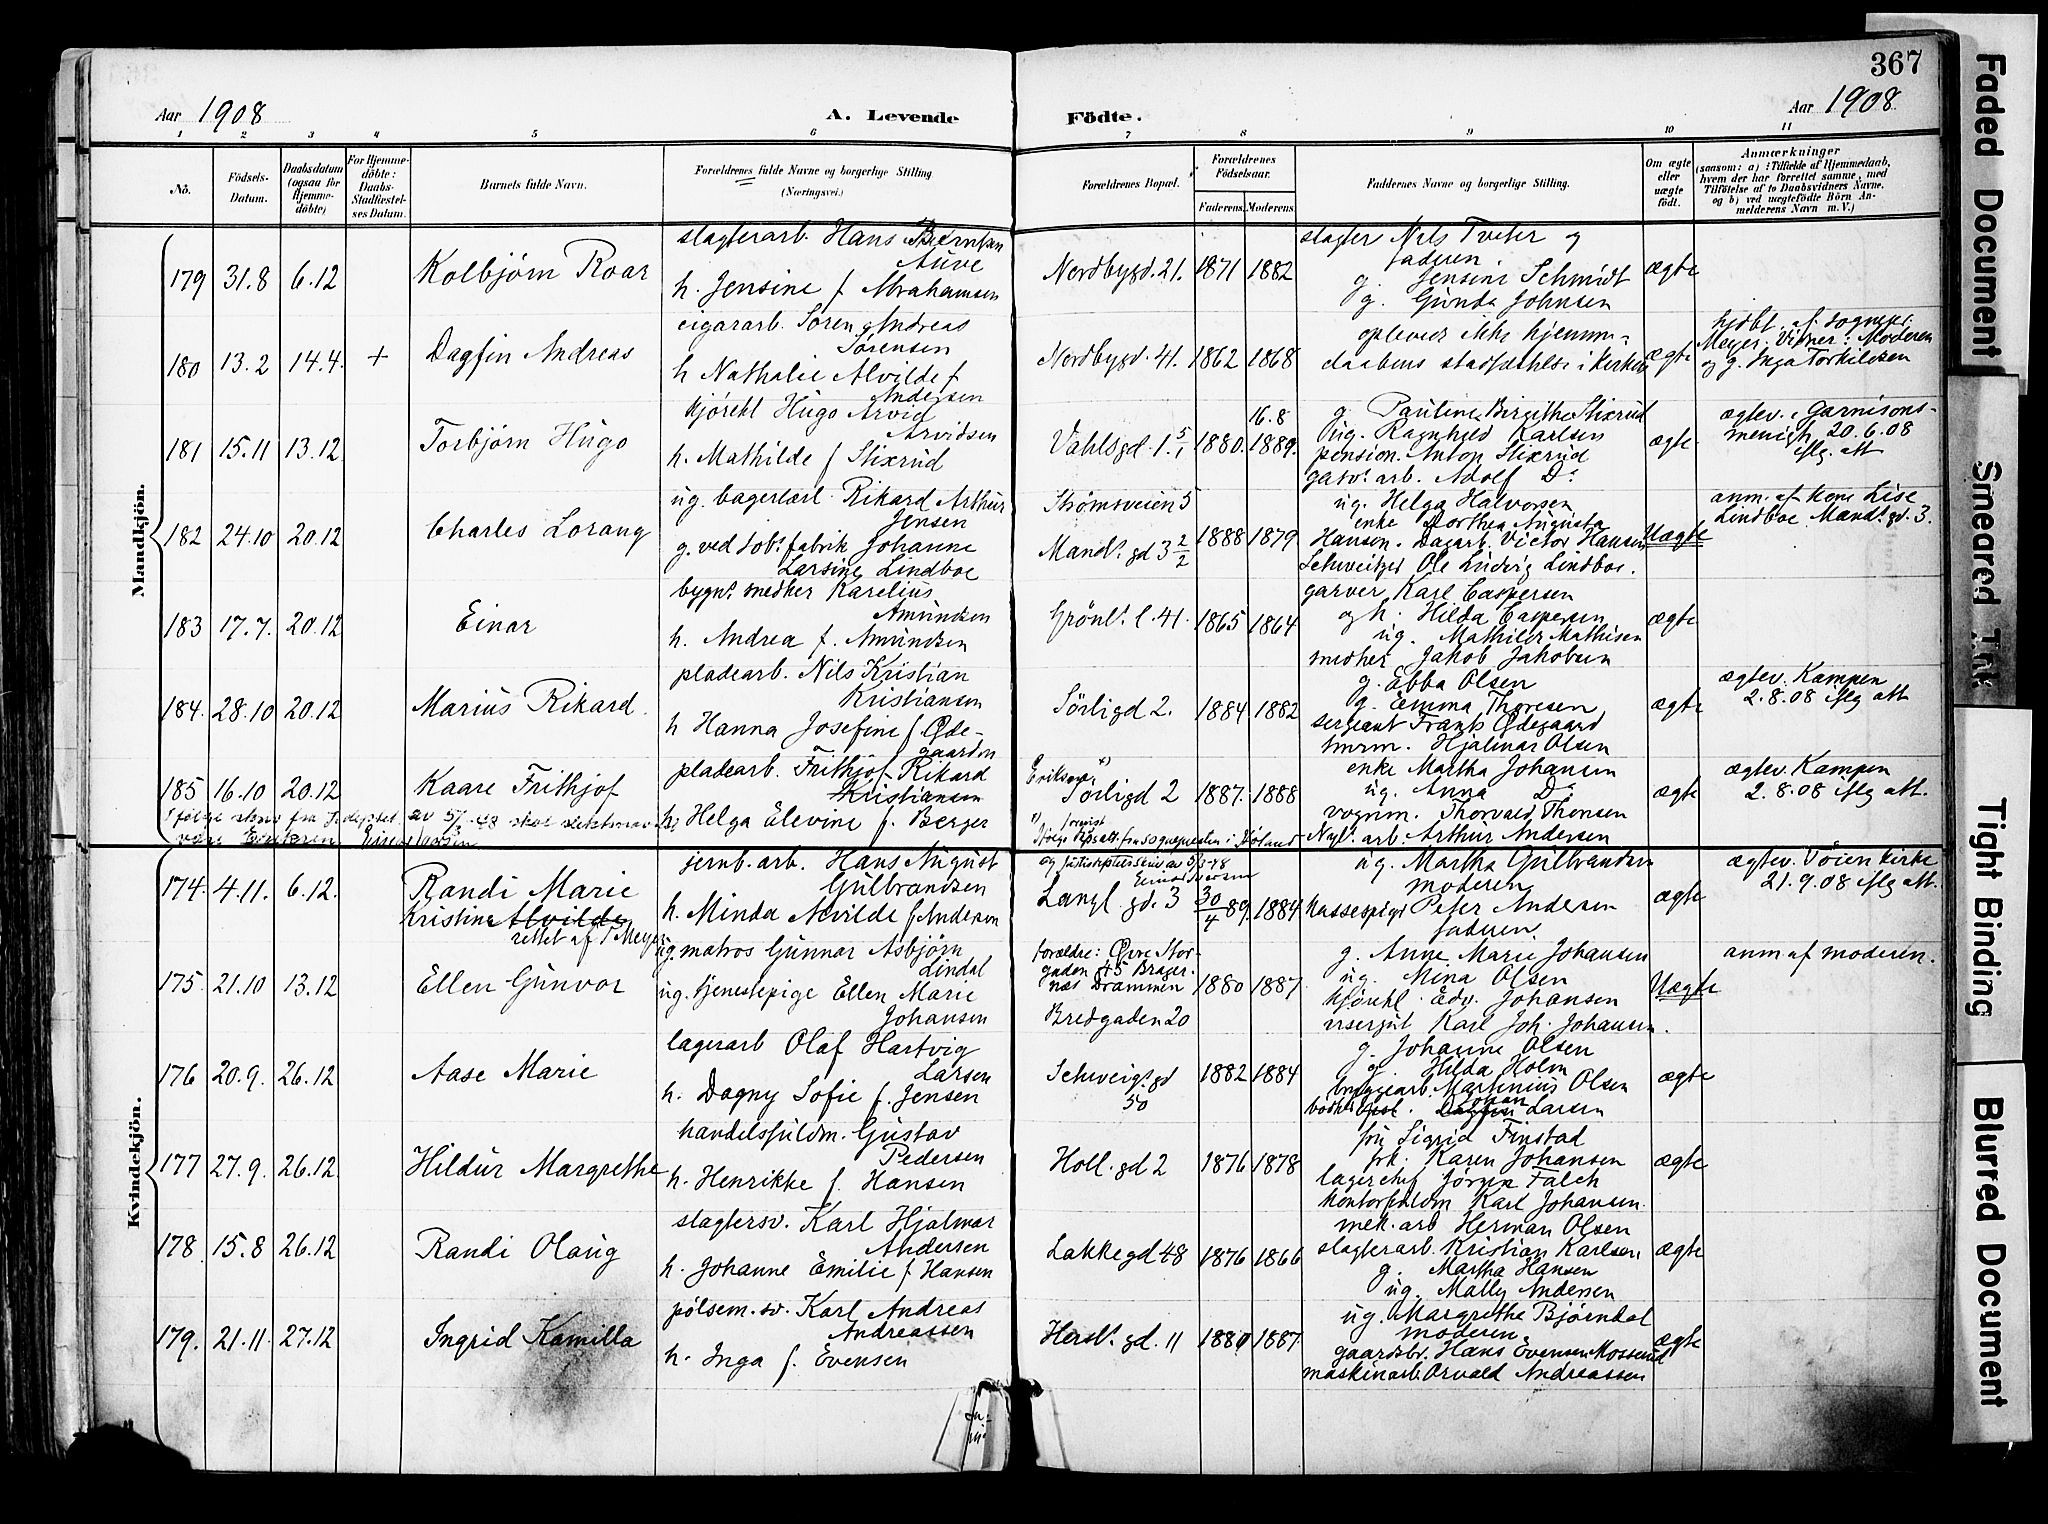 367
Aar 1908
A. Levende
Födte.
Aar 1908.
1 2 3 4 5 6 7 8 9 10 11
Nö.
Födsels-Datum.
Daabsdatum (ogsaa for Hjemme-döbte)
For Hjemme-döbte: Daabs-Stadfæstel-ses Datum.
Barnets fulde Navn.
Forældrenes fulde Navne og borgerlige Stilling (Næringsvei.)
Forældrenes Bopæl.
Forældrenes Födselsaar.
Faderens. Moderens.
Faddernes Navne og borgerlige Stilling.
Om ægte eller uægte født.
Anmærkninger
(saasom: a) i Tilfælde af Hjemmedaab, hvem der har forrettet samme, med Tilföielse af to Daabsvidners Navne. og b) ved uægtefödte Börn An-melderens Navn m. V.)
Mandkjön.
179 31.8 6.12 Kolbjørn Roar
slagterarb. Hans Berntsen
Auve
h. Jensine f Abrahamsen
Nordbygd. 21. 1871 1882
slagter Nils Tveter og
faderen
g. Jensine Schmidt
g. Gunda Johnsen
ægte
180 13.2 14.4. + Dagfin Andreas
cigararb. Søren Andreas
Sørensen
h Nathalie Alvilde f
Andersen
Nordbygd. 41. 1862 1868
opleved ikke hjemme-
daabens stadfæstelse i kirken
ægte
hjdbt. af sognepr.
Meyer. Vidner: Moderen
og g. Inga Torkildsen
181 15.11 13.12 Torbjørn Hugo
kjørekl Hugo Arvid
Arvidsen
h. Mathilde f Stixrud
Vahlsgd. 1 5/1 1880. 16.8 1889.
g Pauline Birgithe Stixrud
ug. Ragnhild Karlsen
pension. Anton Stixrud
gasv. arb. Adolf Do
ægte
ægtev. Garnisons-
menigh. 20.6.08
iflg. att
182 24.10 20.12 Charles Lorang
ug. bagerlærl. Rikard Arthur
Jensen
g. ved tob. fabrik Johanne
Larsine Lindboe
Strømsveien 5
Mands. gd 3 2/2 1888 1879
ug. Helga Halvorsen
enke Dorthea Augusta
Hansen. Dagarb. Victor Hansen
Schweitzer Ole Ludvig Lindboe.
Uægte
anm. af kone Lise
Lindboe Mands. gd. 3.
183 17.7. 20.12 Einar
bygns. snedker Karelius
Amundsen
h. Andrea f. Amundsen
Grønls. l. 41. 1865 1864
garver Karl Caspersen
og h. Hilda Caspersen
ug. Mathilde Mathisen
snedker Jakob Jakobsen
ægte
184. 28.10 20.12 Marius Rikard.
pladearb. Nils Kristian
Kristiansen
h Hanna Josefine f Øde-
gaarden
Sørligd 2. 1884. 1882
g. Ebba Olsen
g. Emma Thoresen
sergeant Frants Ødegaard
tmrm. Hjalmar Olsen
ægte
ægtev. Kampen
2.8.08 iflg att
185 16.10 20.12 Kaare Frithjof
pladearb. Frithjof Rikard
Kristiansen
h. Helga Elevine f. Berger
Sørligd 2 1887. 1888
enke Martha Johansen
ug. Anna Do
vognm. Thorvald Thonsen
Nyl. arb. Arthur Andersen
ægte
ægtev. Kampen
2.8.08 iflg att.
Kvindekjön.
174. 4.11. 6.12. Randi Marie
Kristine Alvilde
rettet af Meyer
jernb. arb. Hans August
Gulbrandsen
h. Minda Alvilde f Andersen
Langl. gd. 3 30/4 89. 1884
ug. Martha Gulbrandsen
moderen
Peter Andersen
faderen.
ægte
ægtev. Vøien kirke
21.9.08 iflg att.
175. 21.10 13.12 Ellen Gunvor
ug. matros Gunnar Asbjørn
Lindal
ug. tjenestepige Ellen Marie
Johansen
forældre: Øvre Stor-
gaden 45 Brager-
næs Drammen
Bredgaden 20
1880 1887
g. Anne Marie Johansen
ug. Nina Olsen
kjørekl. Edv. Johansen
visergut Karl Joh. Johansen.
Uægte
anm af moderen.
176 20.9. 26.12 Aase Marie
lagerarb Olaf Hartvig
Larsen
h. Dagny Sofie f. Jensen
Schweigs. gd
50
1882 1884
g. Johanne Olsen
g. Hilda Holm
bryggearb. Martinius Olsen
Johan
Larsen
ægte
177 27.9. 26.12 Hildur Margrethe
handelsfuldm. Gustav
Pedersen
h. Henrikke f. Hansen
Holl. gd 2 1876 1878
fru Sigrid Finstad
frk. Karen Johansen
lagerchef Jørgen Falch
kontorfuldm Karl Johansen
ægte
178 15.8 26.12 Randi Olaug
slagtersv. Karl Hjalmar
Andersen
h. Johanne Emilie f Hansen
Lakkegd 48 1876 1866
mek. arb Herman Olsen
slagterarb. Kristian Karlsen
g. Martha Hansen
ug. Mally Andersen
ægte
179. 21.11. 27.12 Ingrid Kamilla
pølsem. sv. Karl Andreas
Andreassen
h. Inga f. Evensen
Hersls. gd. 11 1880 1887.
ug. Margrethe Bjørndal
moderen.
gaardsbr. Hans Evensen Mosserud
maskinarb. Arvald Andreassen
ægte
Faded Document
Smeared Ink
Tight Binding
Blurred Document